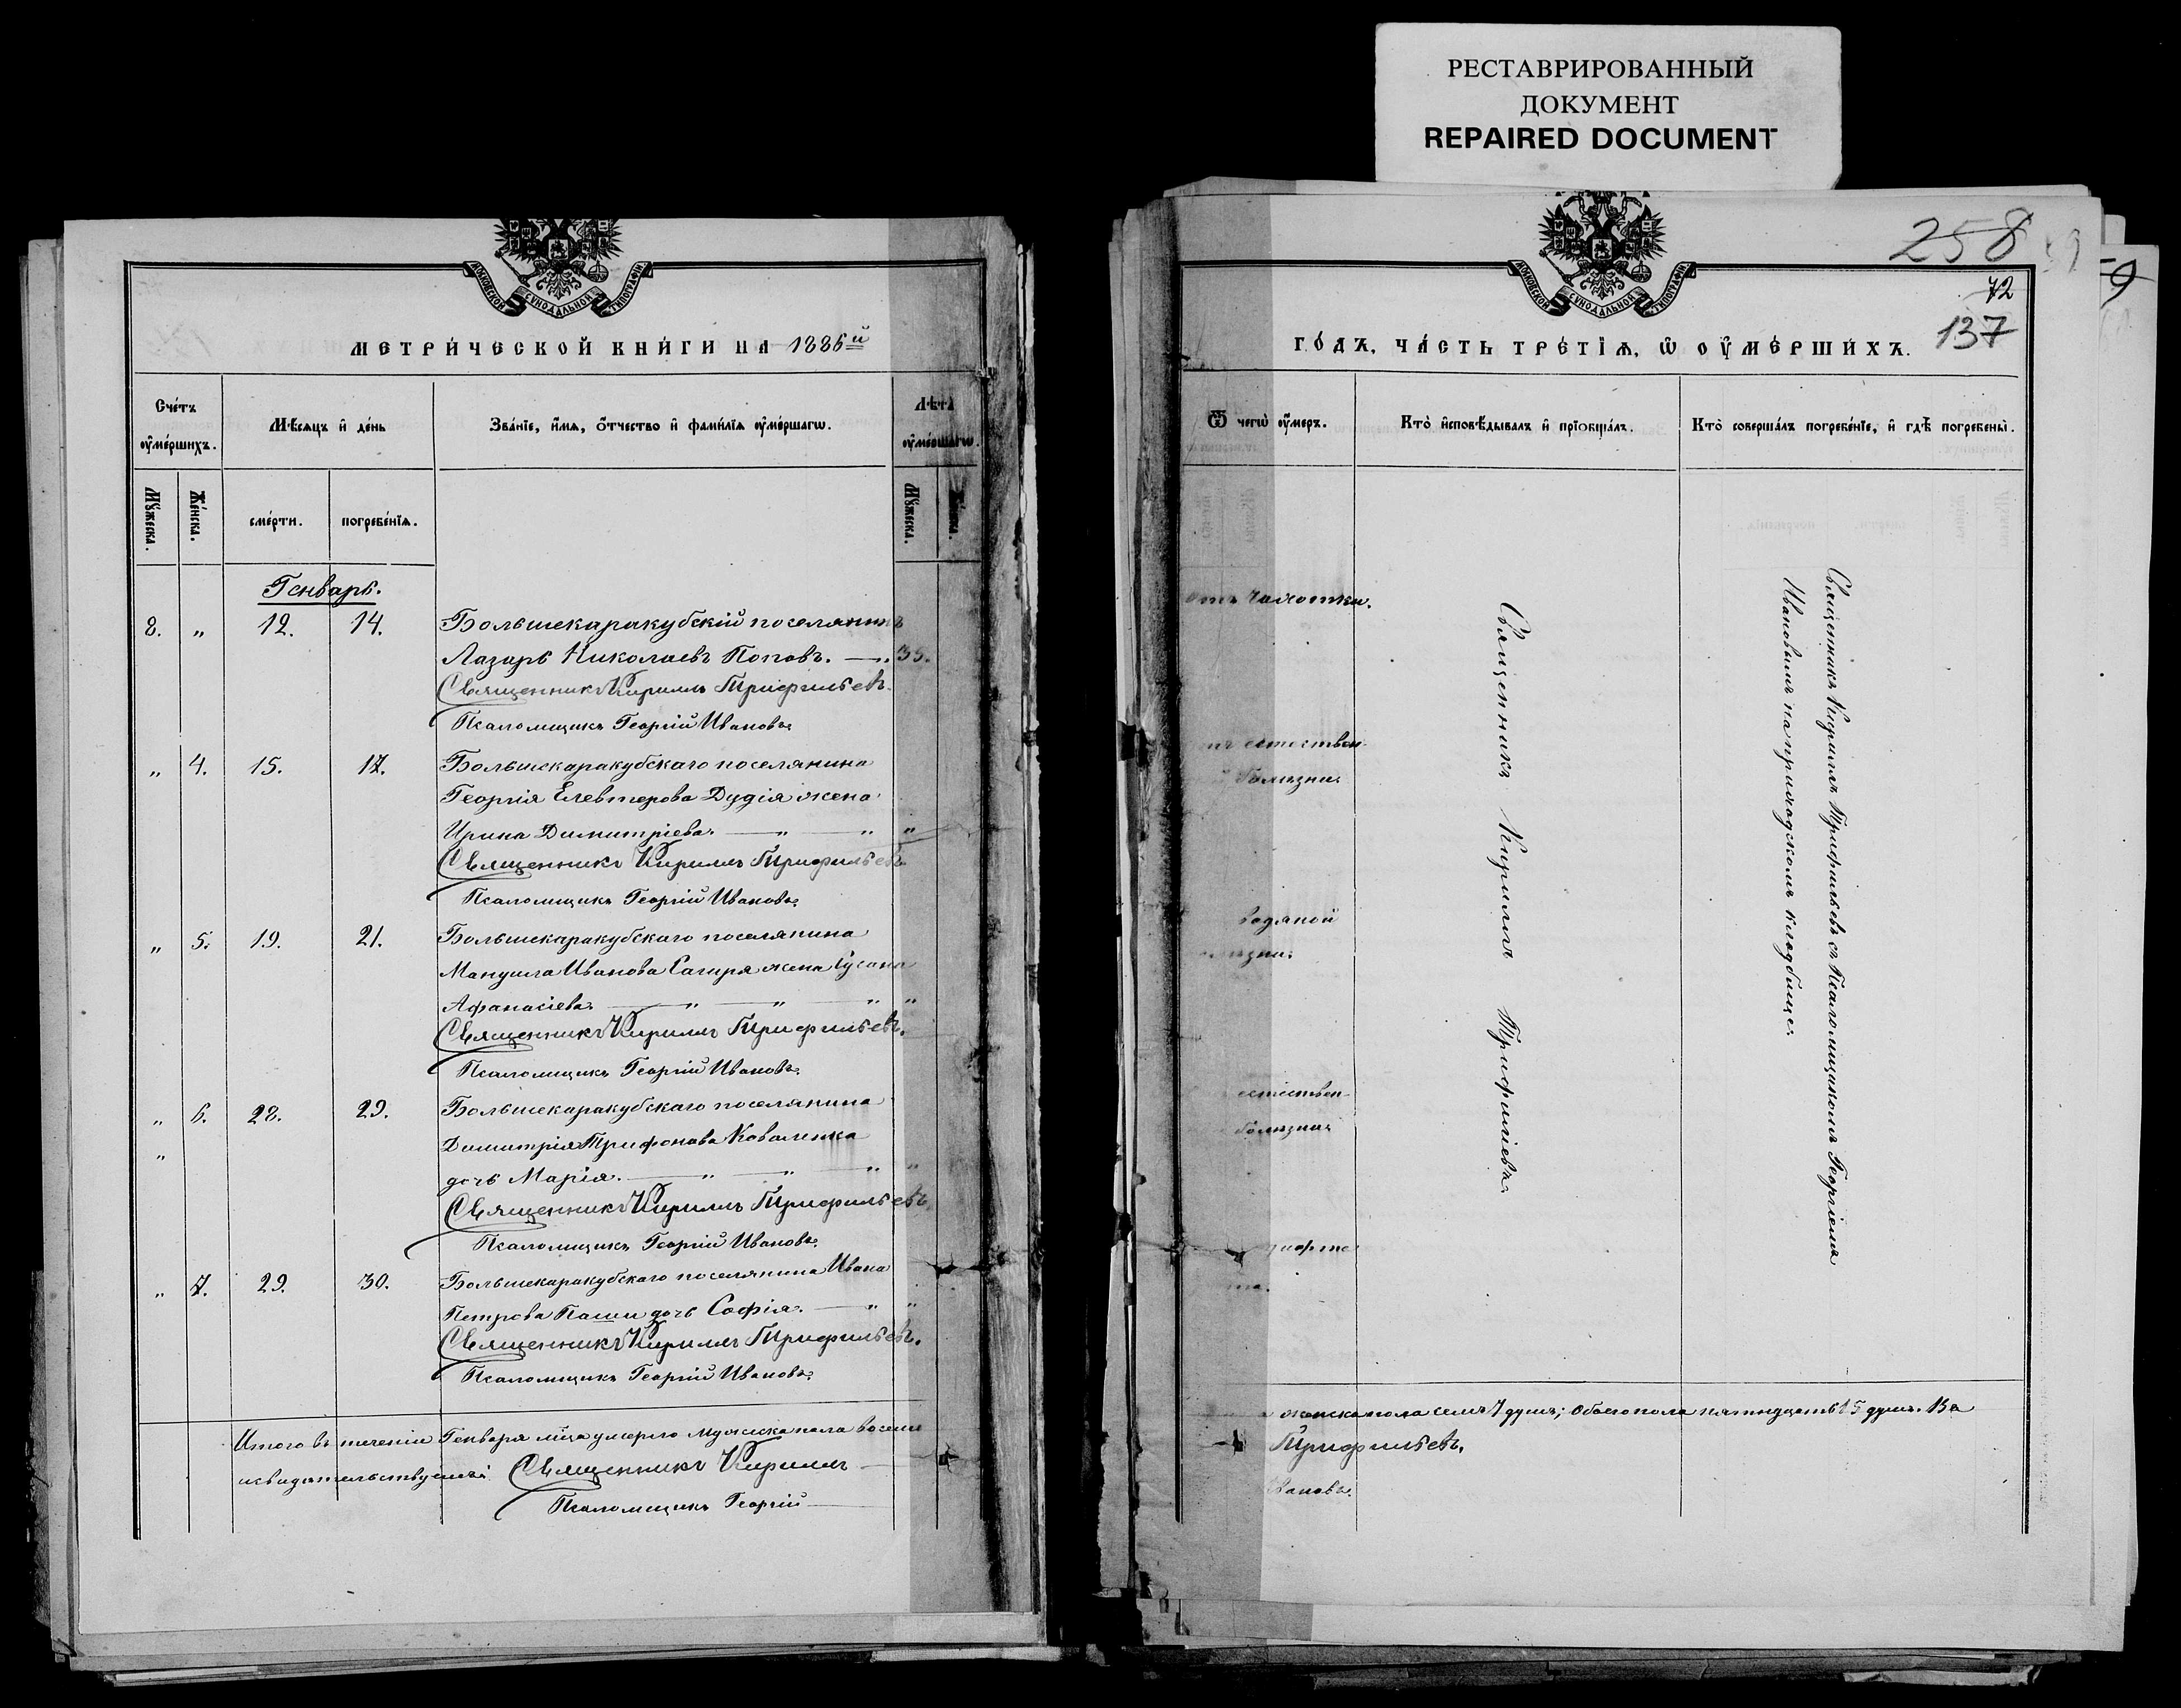 РЕСТАВРИРОВАННЫЙ
ДОКУМЕНТ
REPAIRED DOCUMENT
МОСКОВСКОЙ СѴНОДАЛЬНОЙ ТИПОГРАФІИ
МЕТРИ́ЧЕСКОЙ КНИ́ГИ НА 1886й
Сче́тъ ᲂу҆ме́ршихъ.
Мѣ́сяцъ и҆ де́нь
Зва́нїе, и҆́мѧ, ѻ҆́тчество и҆ фами́лїѧ ᲂу҆ме́ршагѡ.
Лѣта ᲂу҆ме́ршагѡ.
Мꙋ́жеска.
Же́нска.
сме́рти.
погребе́нїѧ.
Мꙋ́жеска.
Же́нска.
Генварь.
8. „ 12. 14. Большекаракубскій поселянинъ
Лазарь Николаевъ Поповъ. — . 35.
Священникъ Кириллъ Трифильевъ.
Псаломщикъ Георгій Ивановъ.
„ 4. 15. 17. Большекаракубскаго поселянина
Георгія Елевтерова Дудія жена
Ирина Димитріева. — „ — „ „
Священникъ Кириллъ Трифильевъ
Псаломщикъ Георгій Ивановъ.
„ 5. 19. 21. Большекаракубскаго поселянина
Мануила Иванова Сагиря жена Сусана
Афанасіева. — „ — „ — „ „
Священникъ Кириллъ Трифильевъ.
Псаломщикъ Георгій Ивановъ.
„ 6. 28. 29. Большекаракубскаго поселянина
„ Димитрія Трифонова Коваленка
дочь Марія. — „ — „ — „ „
Священникъ Кириллъ Трифильевъ
Псаломщикъ Георгій Ивановъ.
„ 7. 29. 30. Большекаракубскаго поселянина Ивана
Петрова Паши дочь Софія. — „ „
Священникъ Кириллъ Трифильевъ.
Псаломщикъ Георгій Ивановъ.
Итого въ теченіи Генваря мѣца умерло мужеска пола восемь
свидѣтельствуемъ: Священникъ Кириллъ —
Псаломщикъ Георгій —
258
72
137
МОСКОВСКОЙ СѴНОДАЛЬНОЙ ТИПОГРАФІИ
ГО́ДЪ, ЧА́СТЬ ТРЕ́ТЇѦ, Ѡ҆ ОУ҆МЕ́РШИХЪ.
Ѿ чегѡ̀ ᲂу҆́меръ.
Кто̀ и҆сповѣ́дывалъ и҆ прїѡбща́лъ.
Кто̀ соверша́лъ погребе́нїе, и҆ гдѣ̀ погребены̀.
отъ чахотки.
естествен-
болѣзни.
водяной
естествен-
болѣзни
Священникъ Кириллъ Трифиліевъ.
Священникъ Кириллъ Трифильевъ съ Псаломщикомъ Георгіемъ
Ивановымъ на приходскомъ кладбище.
женска пола семь 7 душъ; обоего пола пятнадцать 15 душъ. Въ
Трифильевъ.
Ивановъ.